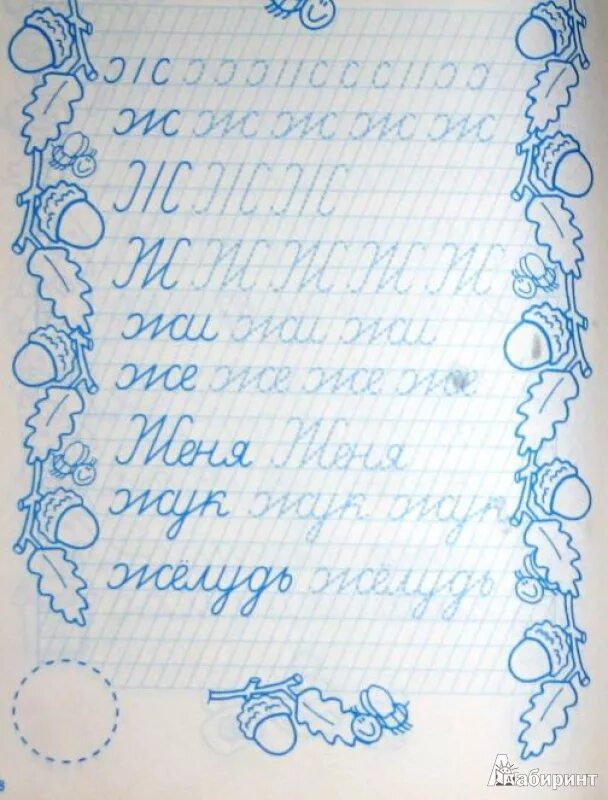 ж ж ж ж ж
Ж Ж Ж Ж Ж
жи жи жи
же же же же
Женя Женя
жук жук жук
жёлудь жёлудь
Лабиринт